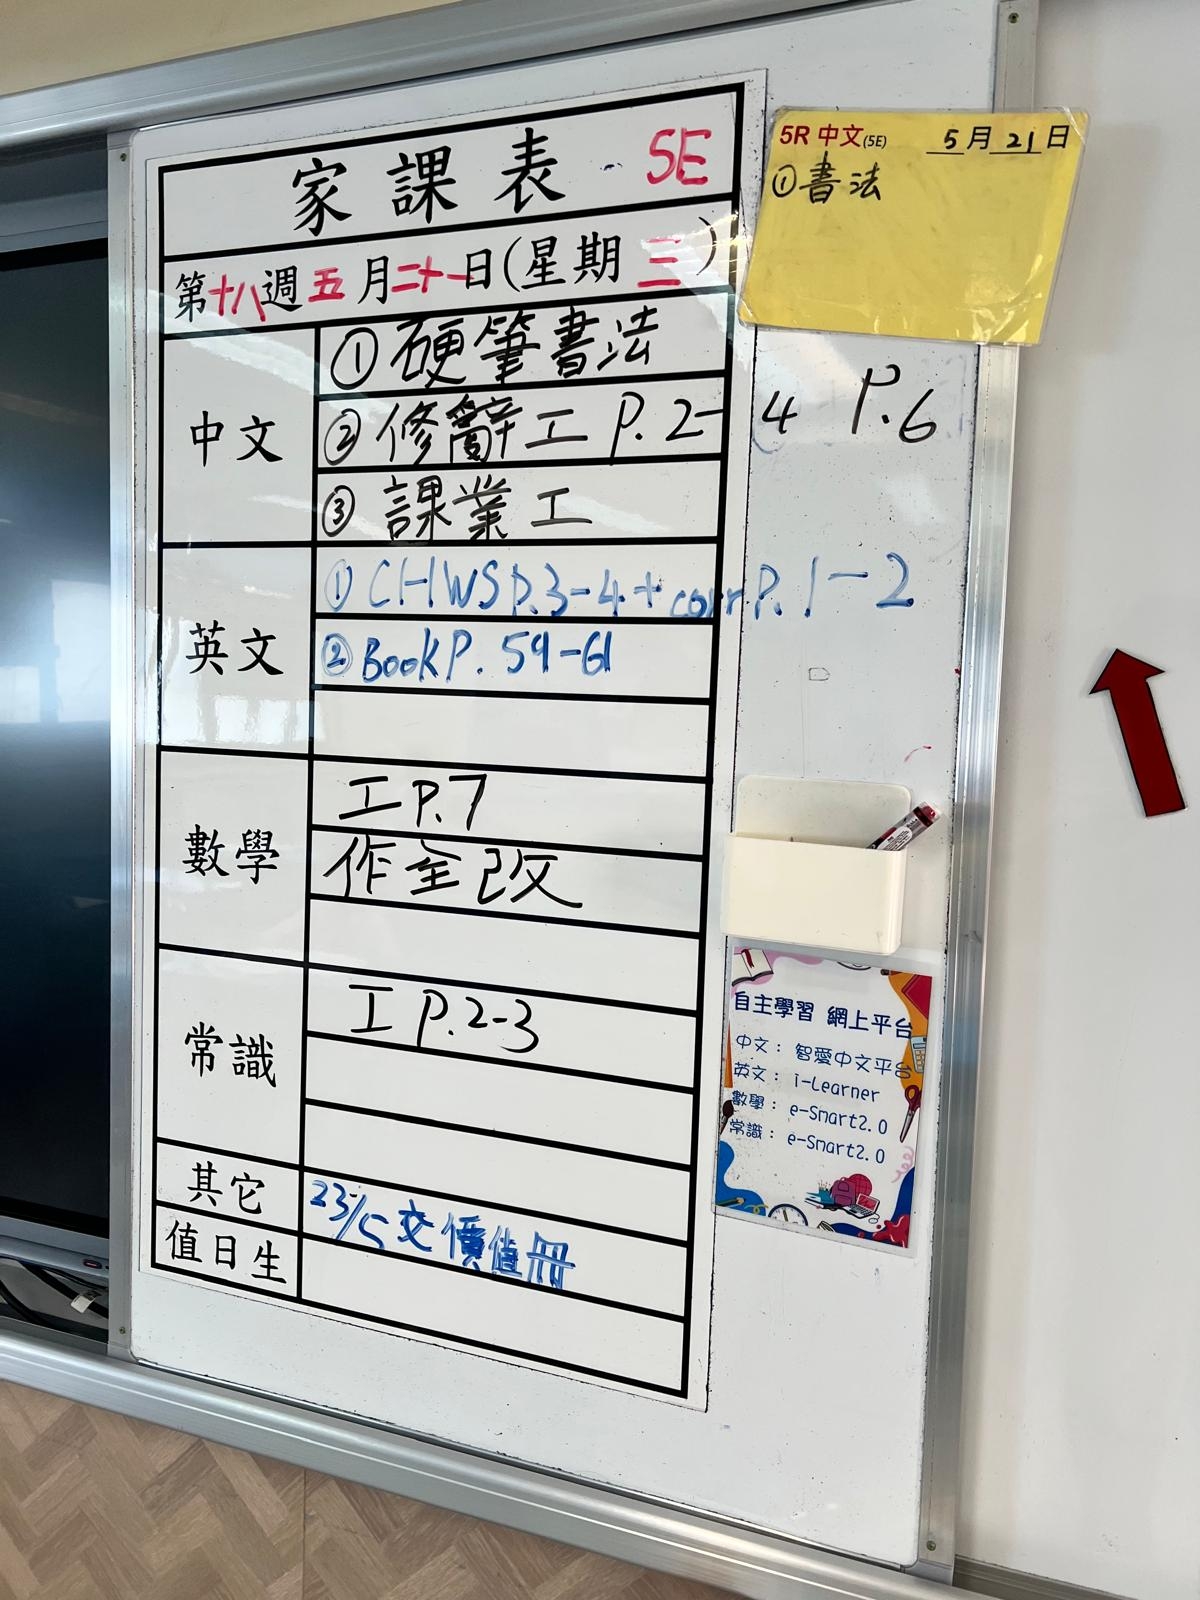 家課表 5E
第十八週 五月二十一日(星期三)
中文
①硬筆書法
②修辭工 P.2-4 P.6
③課業工
英文
①CHWS P.3-4+corr P.1-2
②Book P. 59-61
數學
工 P.7
作全改
常識
工 P.2-3
其它
23/5 交價值冊
值日生
5R 中文(5E) 5月21日
①書法
自主學習 網上平台
中文： 智愛中文平台
英文： i-Learner
數學： e-Smart2.0
常識： e-Smart2.0